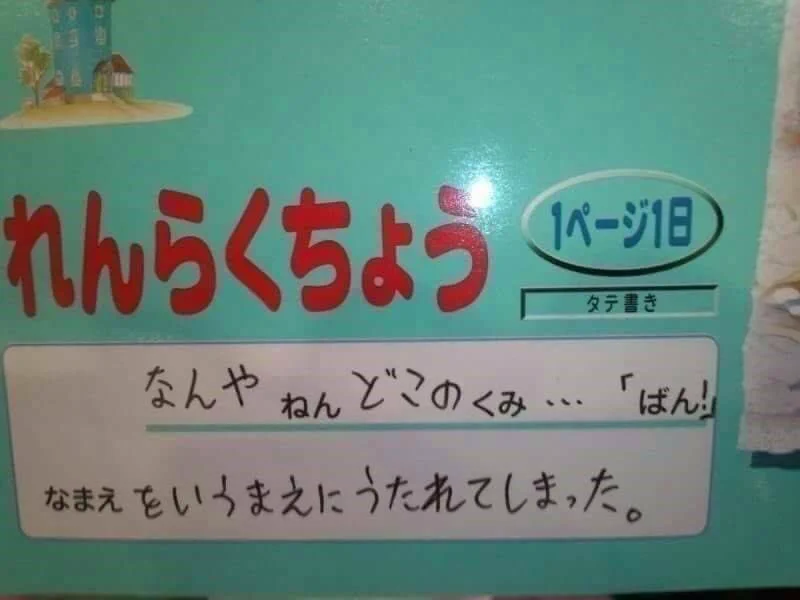 れんらくちょう
1ページ1日
タテ書き
なんや ねん どこの くみ … 「ばん!」
なまえ をいうまえにうたれてしまった。